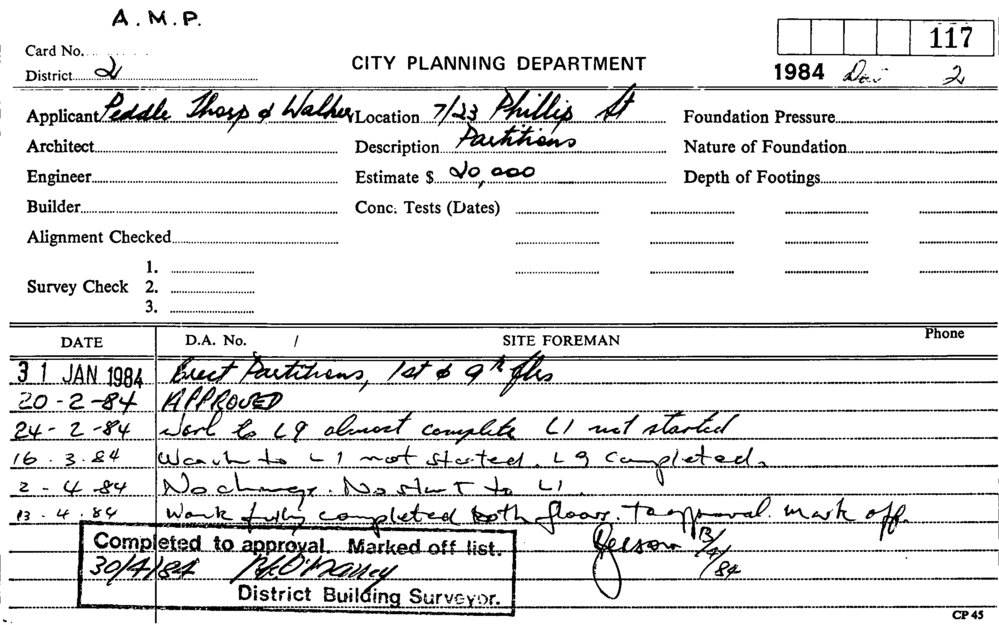 A.M.P.
117
Card No.
CITY PLANNING DEPARTMENT
1984 2
District 2
Applicant Peddle Thorp & Walker Location 7/23 Phillip St Foundation Pressure
Architect Description Partitions Nature of Foundation
Engineer Estimate $ 20,000 Depth of Footings
Builder Conc. Tests (Dates)
Alignment Checked
1.
Survey Check 2.
3.
DATE D.A. No. / SITE FOREMAN Phone
31 JAN 1984 Erect Partitions, 1st & 9th flrs
20-2-84 APPROVED
24-2-84 Work to L9 almost complete L1 not started
16.3.84 Work to L1 not started. L9 completed.
2-4-84 No change. No start to L1.
13.4.84 Work fully completed both floors. To approval. mark off.
13/4/84
Completed to approval. Marked off list.
30/4/84
District Building Surveyor.
CP 45